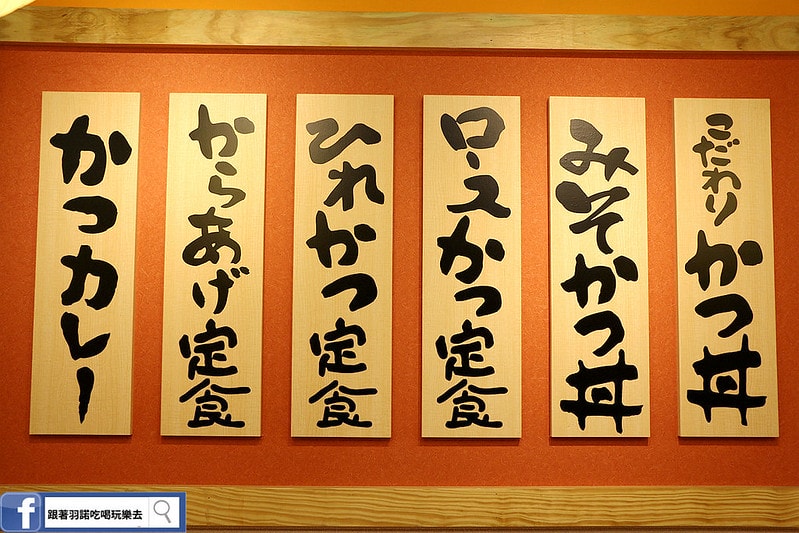 こだわりかつ丼
みそかつ丼
ロースかつ定食
ひれかつ定食
からあげ定食
かつカレー
跟著羽諾吃喝玩樂去